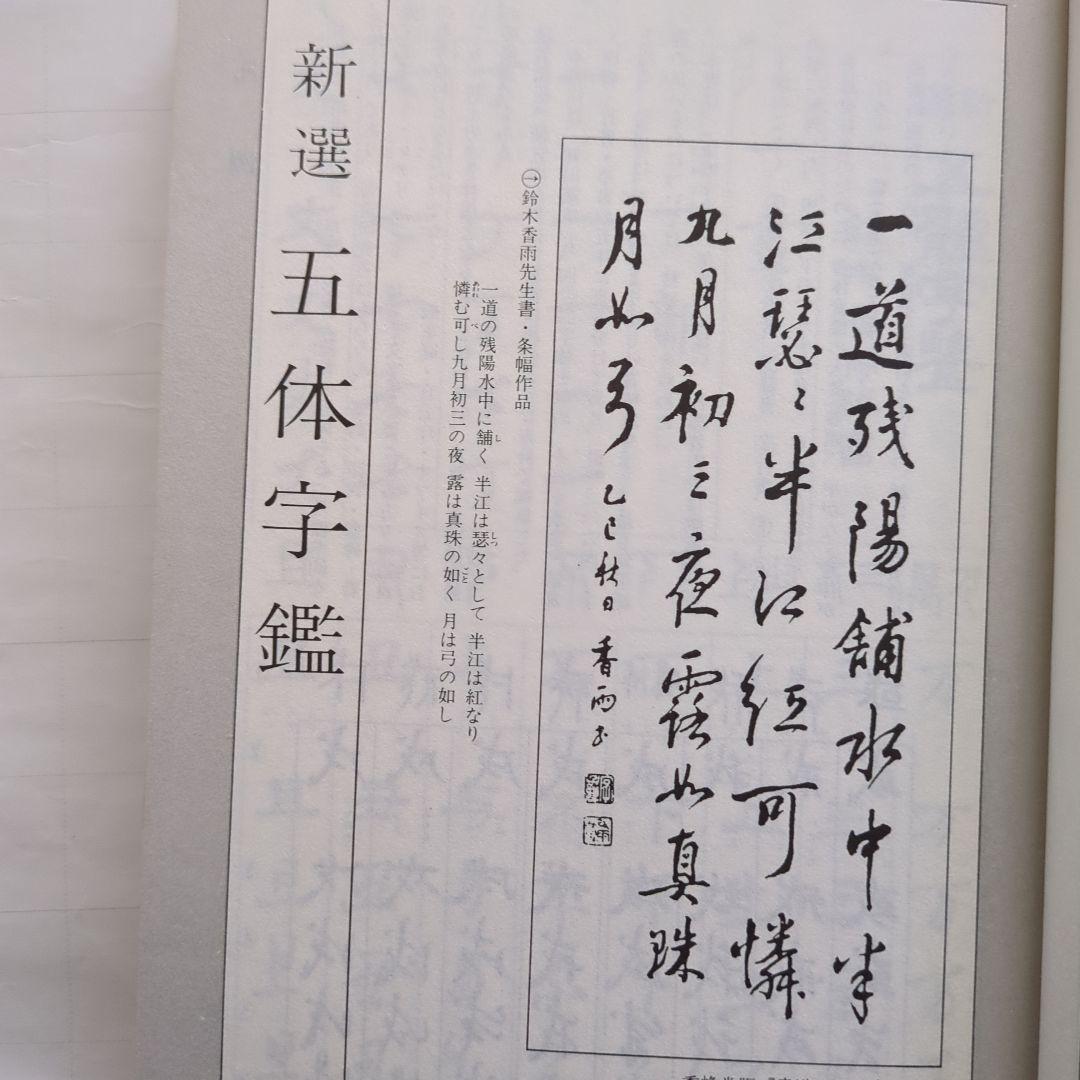 一道残陽舗水中半
江瑟〻半江紅可憐
九月初三夜露如真珠
月如弓 乙巳秋日 香雨书
㊀鈴木香雨先生書・条幅作品
一道の残陽水中に舗く 半江は瑟々として 半江は紅なり
憐む可し九月初三の夜 露は真珠の如く 月は弓の如し
新選五体字鑑